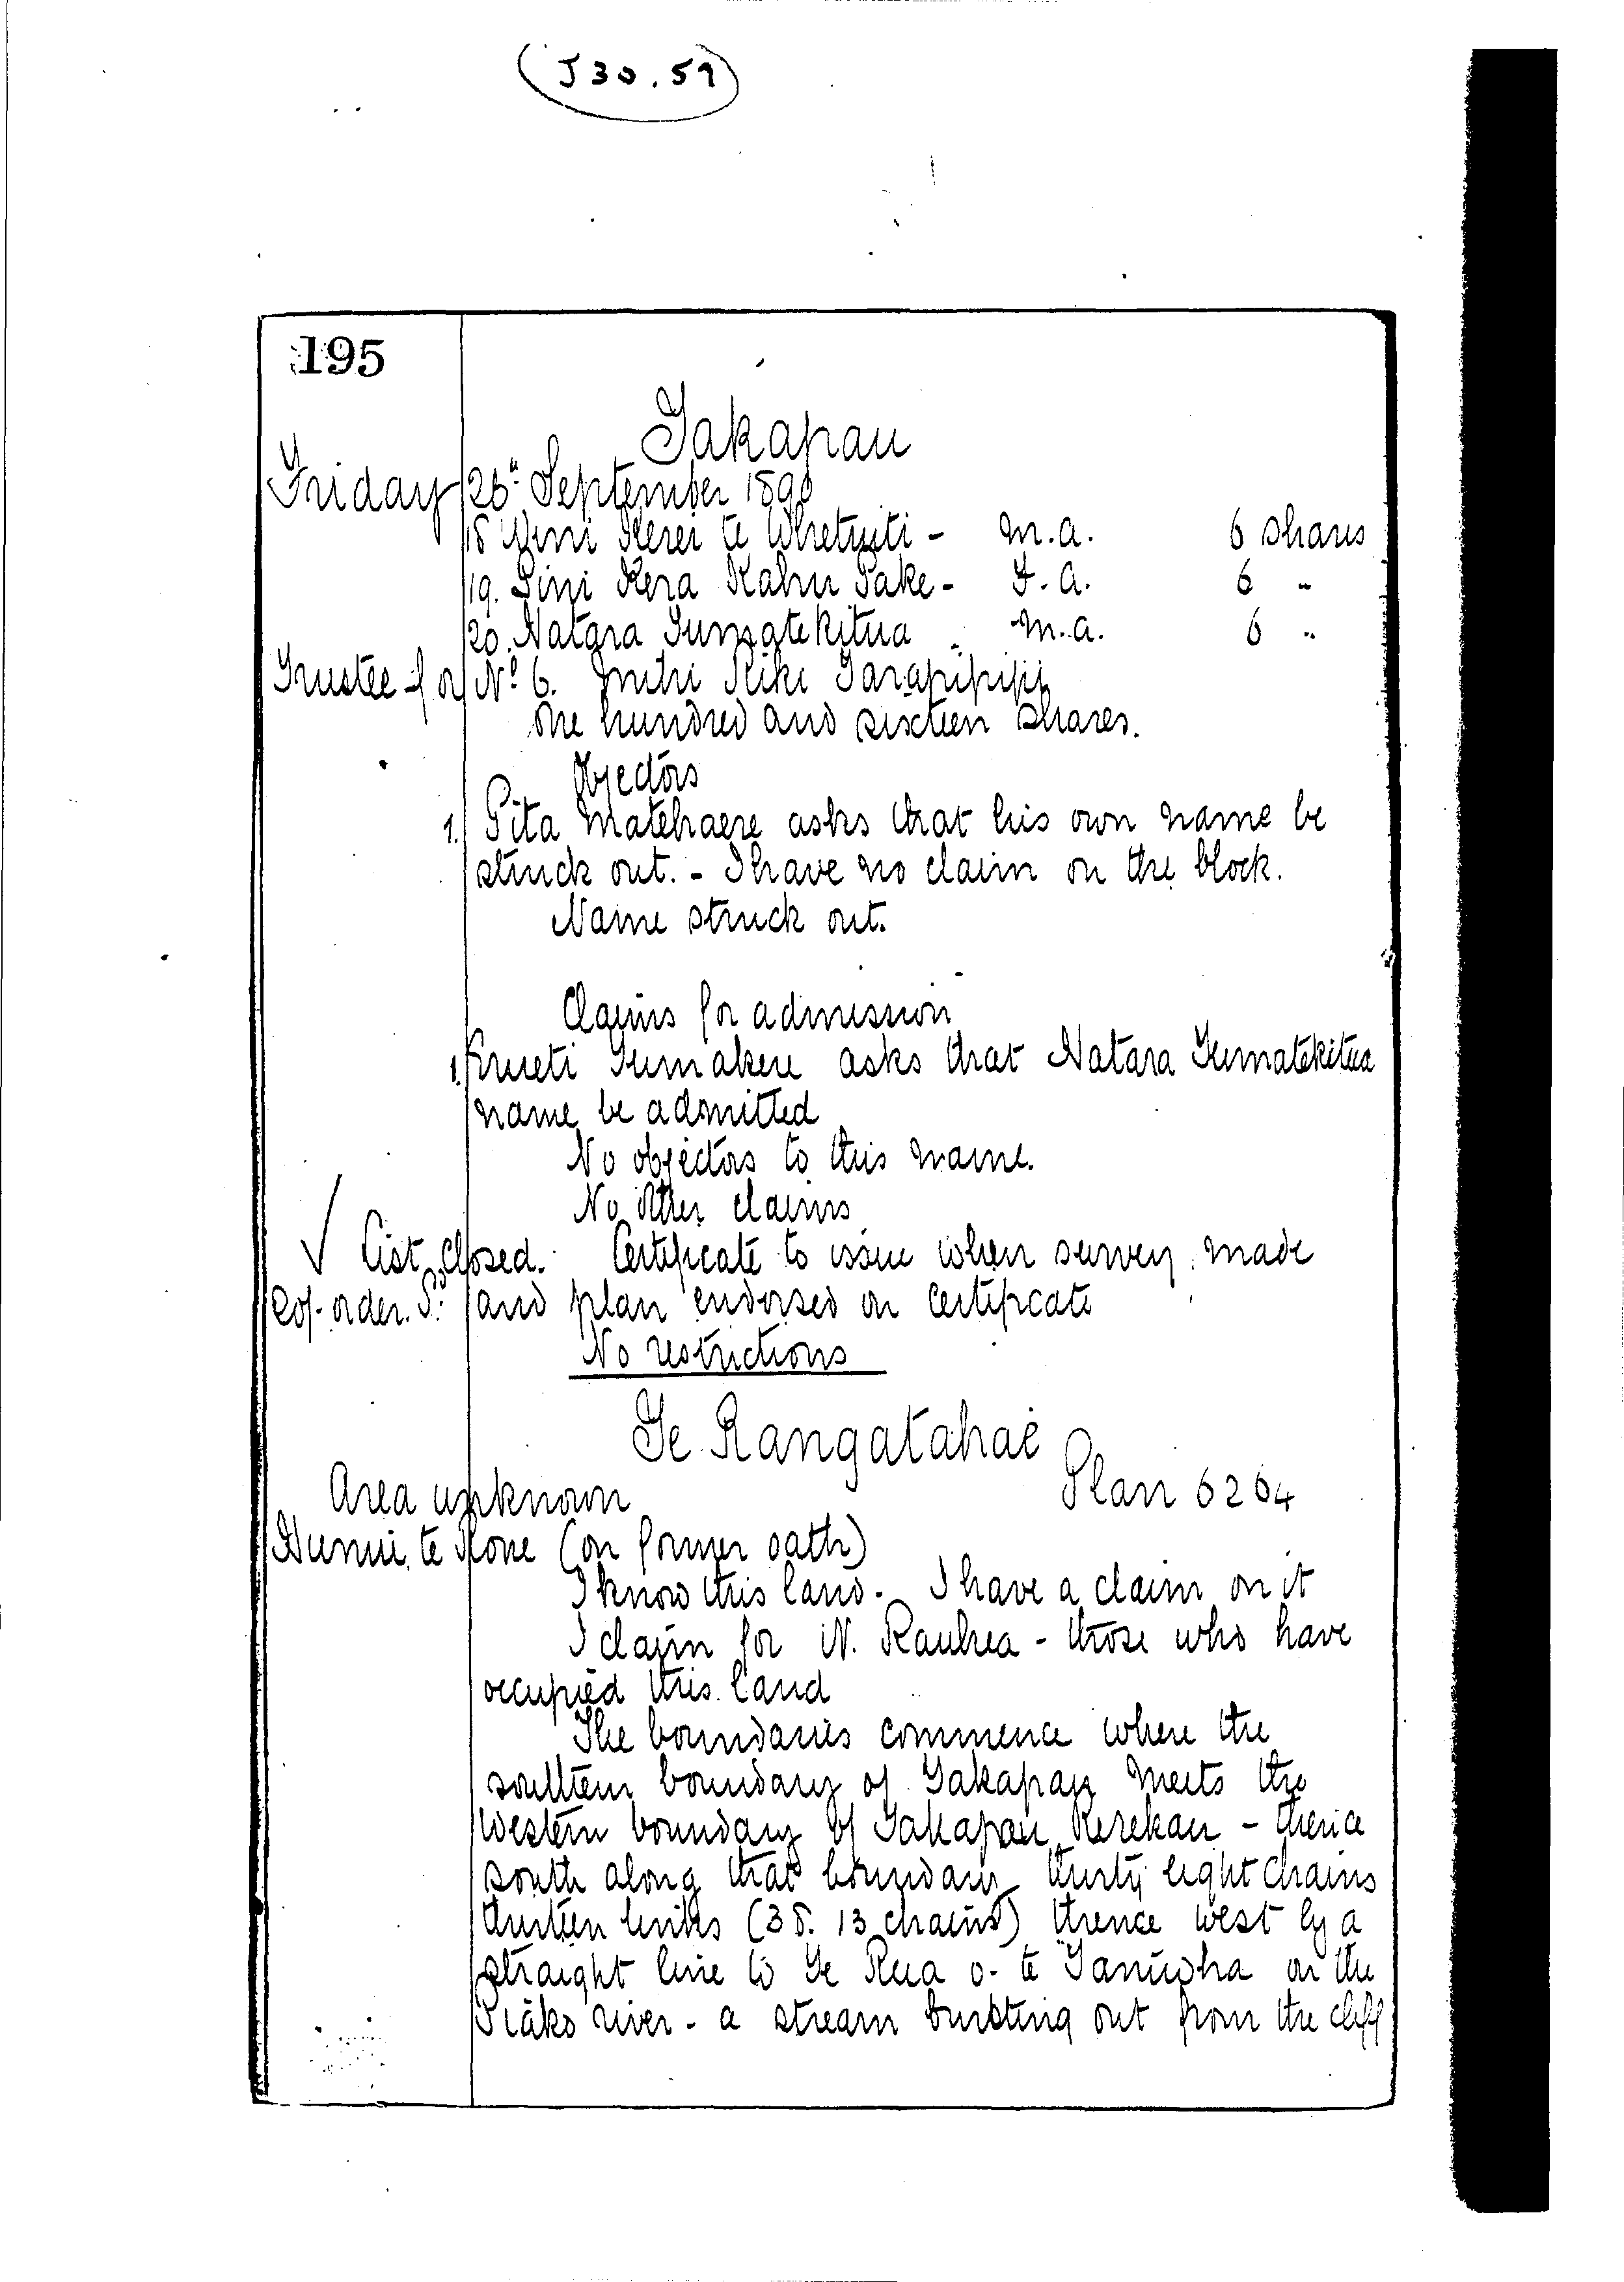 (J30.59)
195
Takapau
Friday 26th September 1890
18 Wini Kerei te Whetuiti - m.a. 6 shares
19. Pini Kera Kahu Pake - F.a. 6 "
20. Natara Tumatekitua - m.a. 6 "
Trustee for No 6. Mihi Kiki Tarapipipi
One hundred and sixteen shares.
Objectors
1. Pita Matehaere asks that his own name be
struck out. - I have no claim on the block.
Name struck out.
Claims for admission
1. Erueti Tumakere asks that Natara Tumatekitua
name be admitted
No objectors to this name.
No other claims
✓ List closed. Certificate to issue when survey made
order. and plan endorsed on certificate
No restrictions
Te Rangatahae
Area unknown Plan 6264
te Hone (on former oath)
I know this land. I have a claim on it
I claim for N. Rauhea - those who have
occupied this land
The boundaries commence where the
southern boundary of Takapau meets the
Western boundary of Takapau Kerekau - thence
south along that boundary thirty eight chains
thirteen links (38.13 chains) thence west by a
straight line to Te Rua o- te Taniwha on the
Piako river - a stream bursting out from the cliff